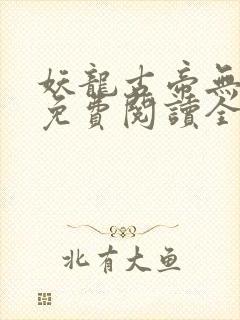 妖龍古帝無
免費閱讀全
北有大鱼